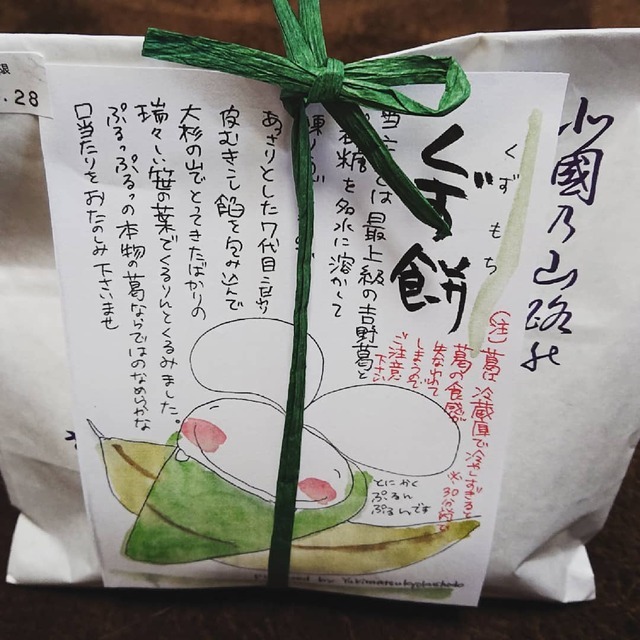 小國乃山路
くず餅
くずもち
は最上級の吉野葛と
糖を名水に溶かして
あっさりとした7代目
皮むきこし餡を包み込んで
大杉の山でとってきたばかりの
瑞々しい笹の葉でくるりんとくるみました。
ぷるっぷるっの本物の葛ならではのなめらかな
口当たりをおたのしみ下さいませ
(注)葛は冷蔵庫で冷やしすぎると
葛の食感が
しまうので
ご注意
下さい
とにかく
ぷるん
ぷるんです
限
.28